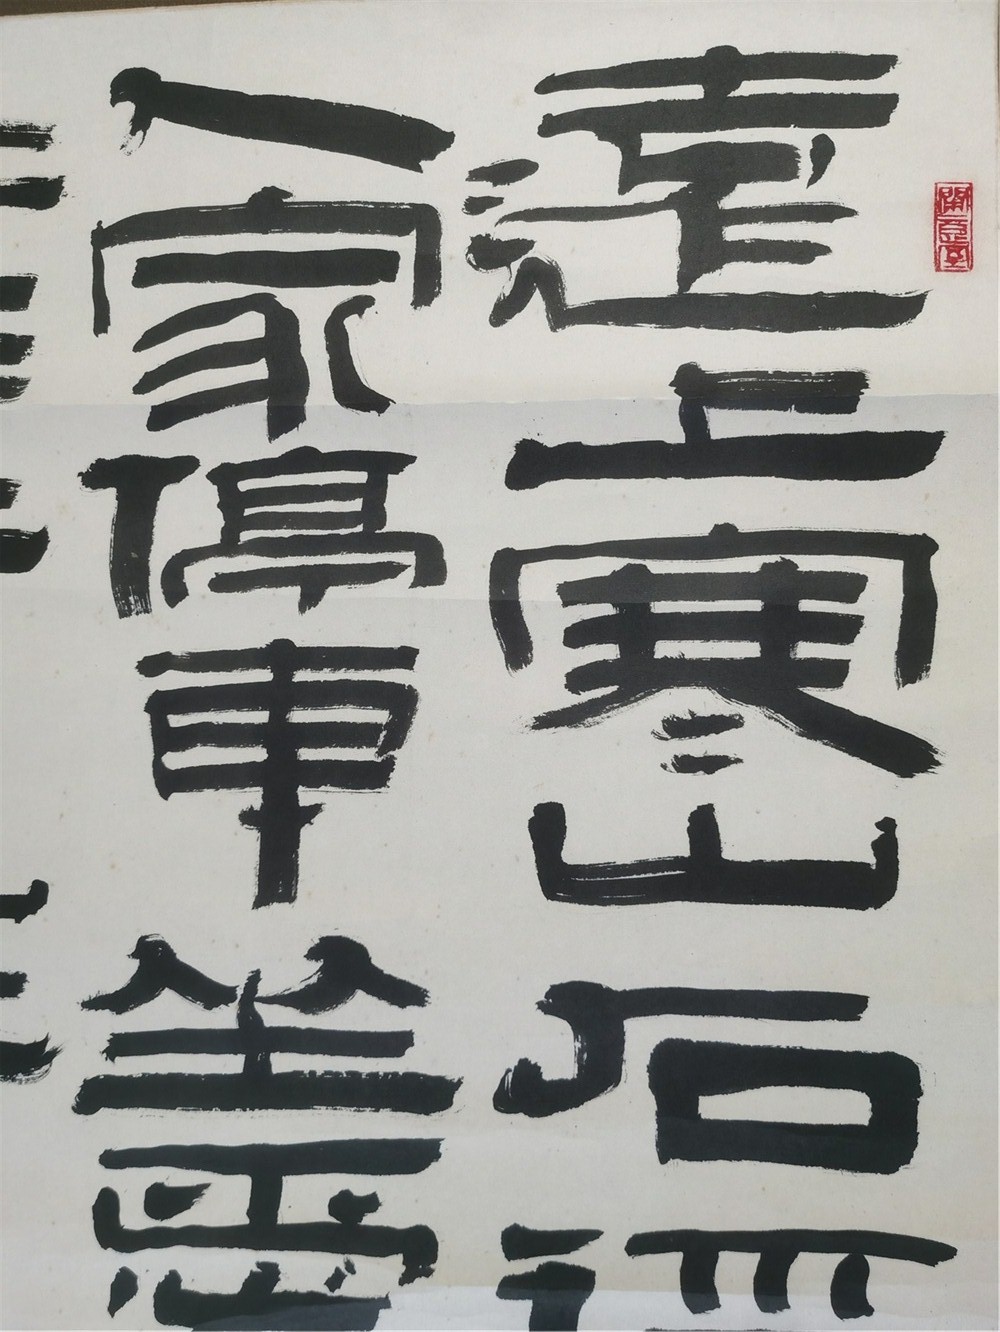 遠上寒山石徑
人家停車坐愛